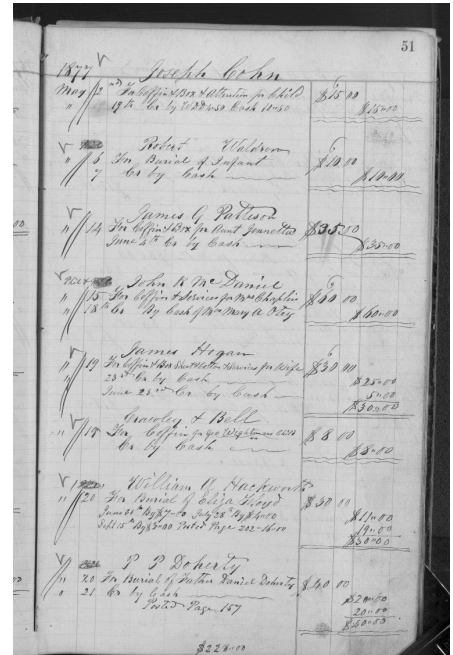 51
1877 Joseph Cohn
May 2nd For Coffin & Box & Attention for Child $15.00
" 19th Cr by Cash 10.50 $15.00
Robert Waldron
" 6 For Burial of Infant $10.00
7 Cr by Cash $10.00
James G Patteson
" 14 For Coffin & Box for Aunt Jennetta $35.00
June 4th Cr by Cash $35.00
John K McDaniel
" 15 For Coffin & Services for Mrs Chaplin $60.00
" 18th Cr By Cash of Mrs Mary A Otey $60.00
James Hogan
" 19 For Coffin & Box & Services for Wife $30.00
" 23rd Cr by Cash $25.00
June 23rd Cr by Cash 5.00
$30.00
Crawley & Bell
" 19 For Coffin for Geo Wightman $8.00
Cr by Cash $8.00
William Hackworth
" 20 For Burial of Eliza Floyd $30.00
June 30th By $7.00 July 28th By $4.00 $11.00
Sept 15th By $3.00 Posted Page 202 16.00 19.00
$30.00
P P Doherty
" 20 For Burial of Father Daniel Doherty $40.00
" 21 Cr by Cash $20.00
Posted Page 157 20.00
$40.00
$228.00